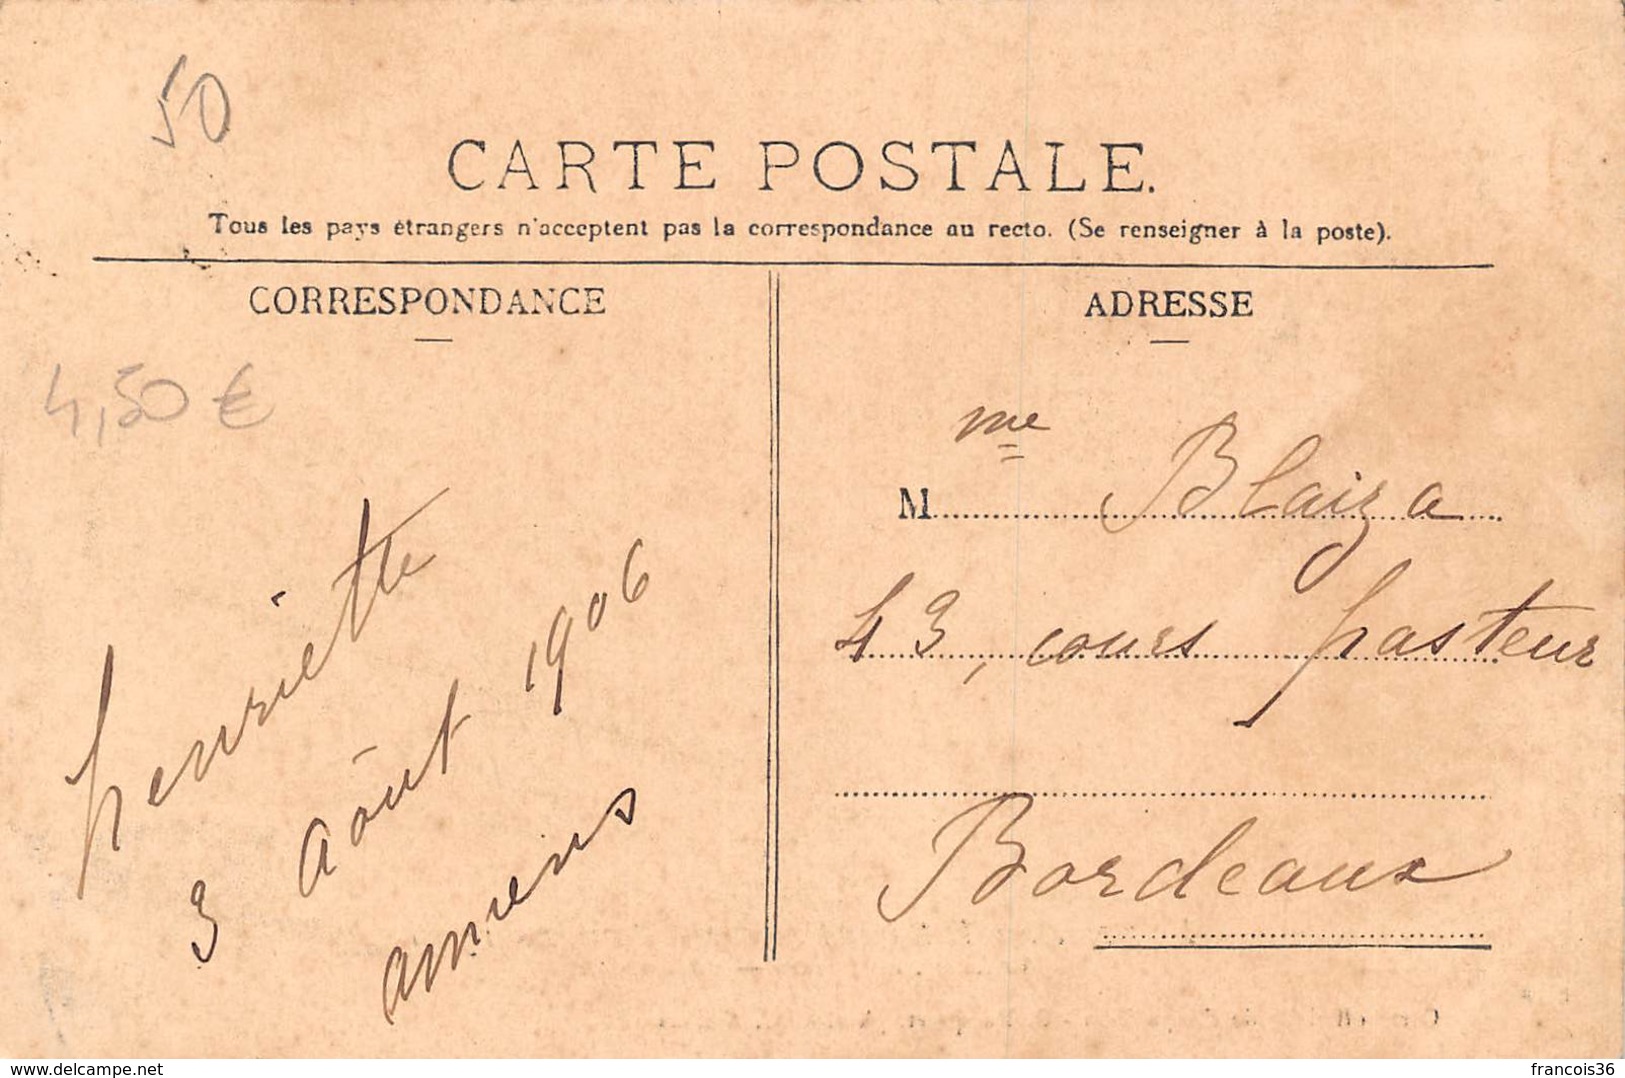 50
CARTE POSTALE.
Tous les pays étrangers n'acceptent pas la correspondance au recto. (Se renseigner à la poste).
CORRESPONDANCE
4,50 €
henriette
3 août 1906
amiens
ADRESSE
M me Blaiza
43, cours pasteur
Bordeaux
delcampe.net
francois36